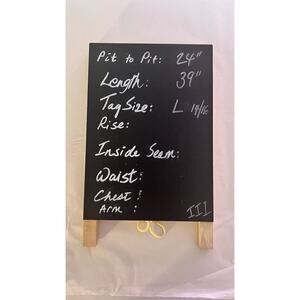 Pit to Pit: 24"
Length: 39"
Tag Size: L 14/16
Rise:
Inside Seam:
Waist:
Chest:
Arm:
III